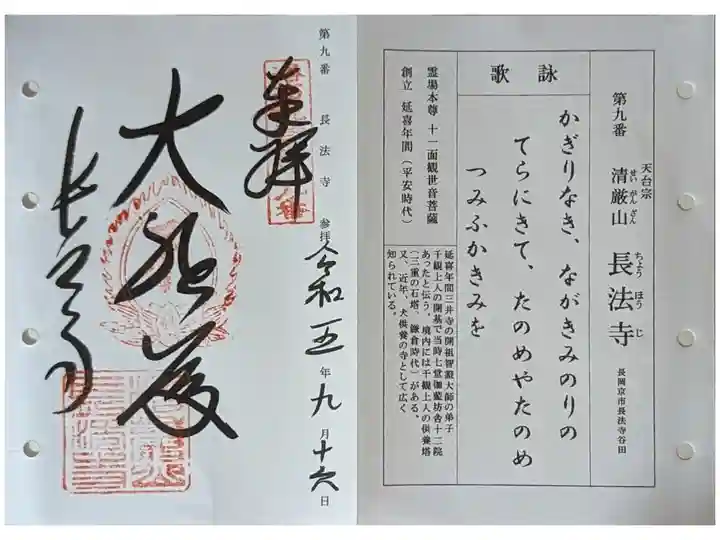 天台宗
第九番 清厳山 長法寺
せいがんざん
ちょうほうじ
長岡京市長法寺谷田
詠歌
かぎりなき、ながきみのりの
てらにきて、たのめやたのめ
つみふかきみを
霊場本尊 十一面観世音菩薩
創立 延喜年間(平安時代)
延喜年間三井寺の開祖智證大師の弟子
千観上人の開基で当時七堂伽藍坊舎十二院
あったと伝う。境内には千観上人の供養塔
(三重の石塔、鎌倉時代)がある。
又、近年、犬供養の寺として広く
知られている。
第九番 長法寺 参拝 令和五年九月十六日
奉拝
大悲殿
長法寺